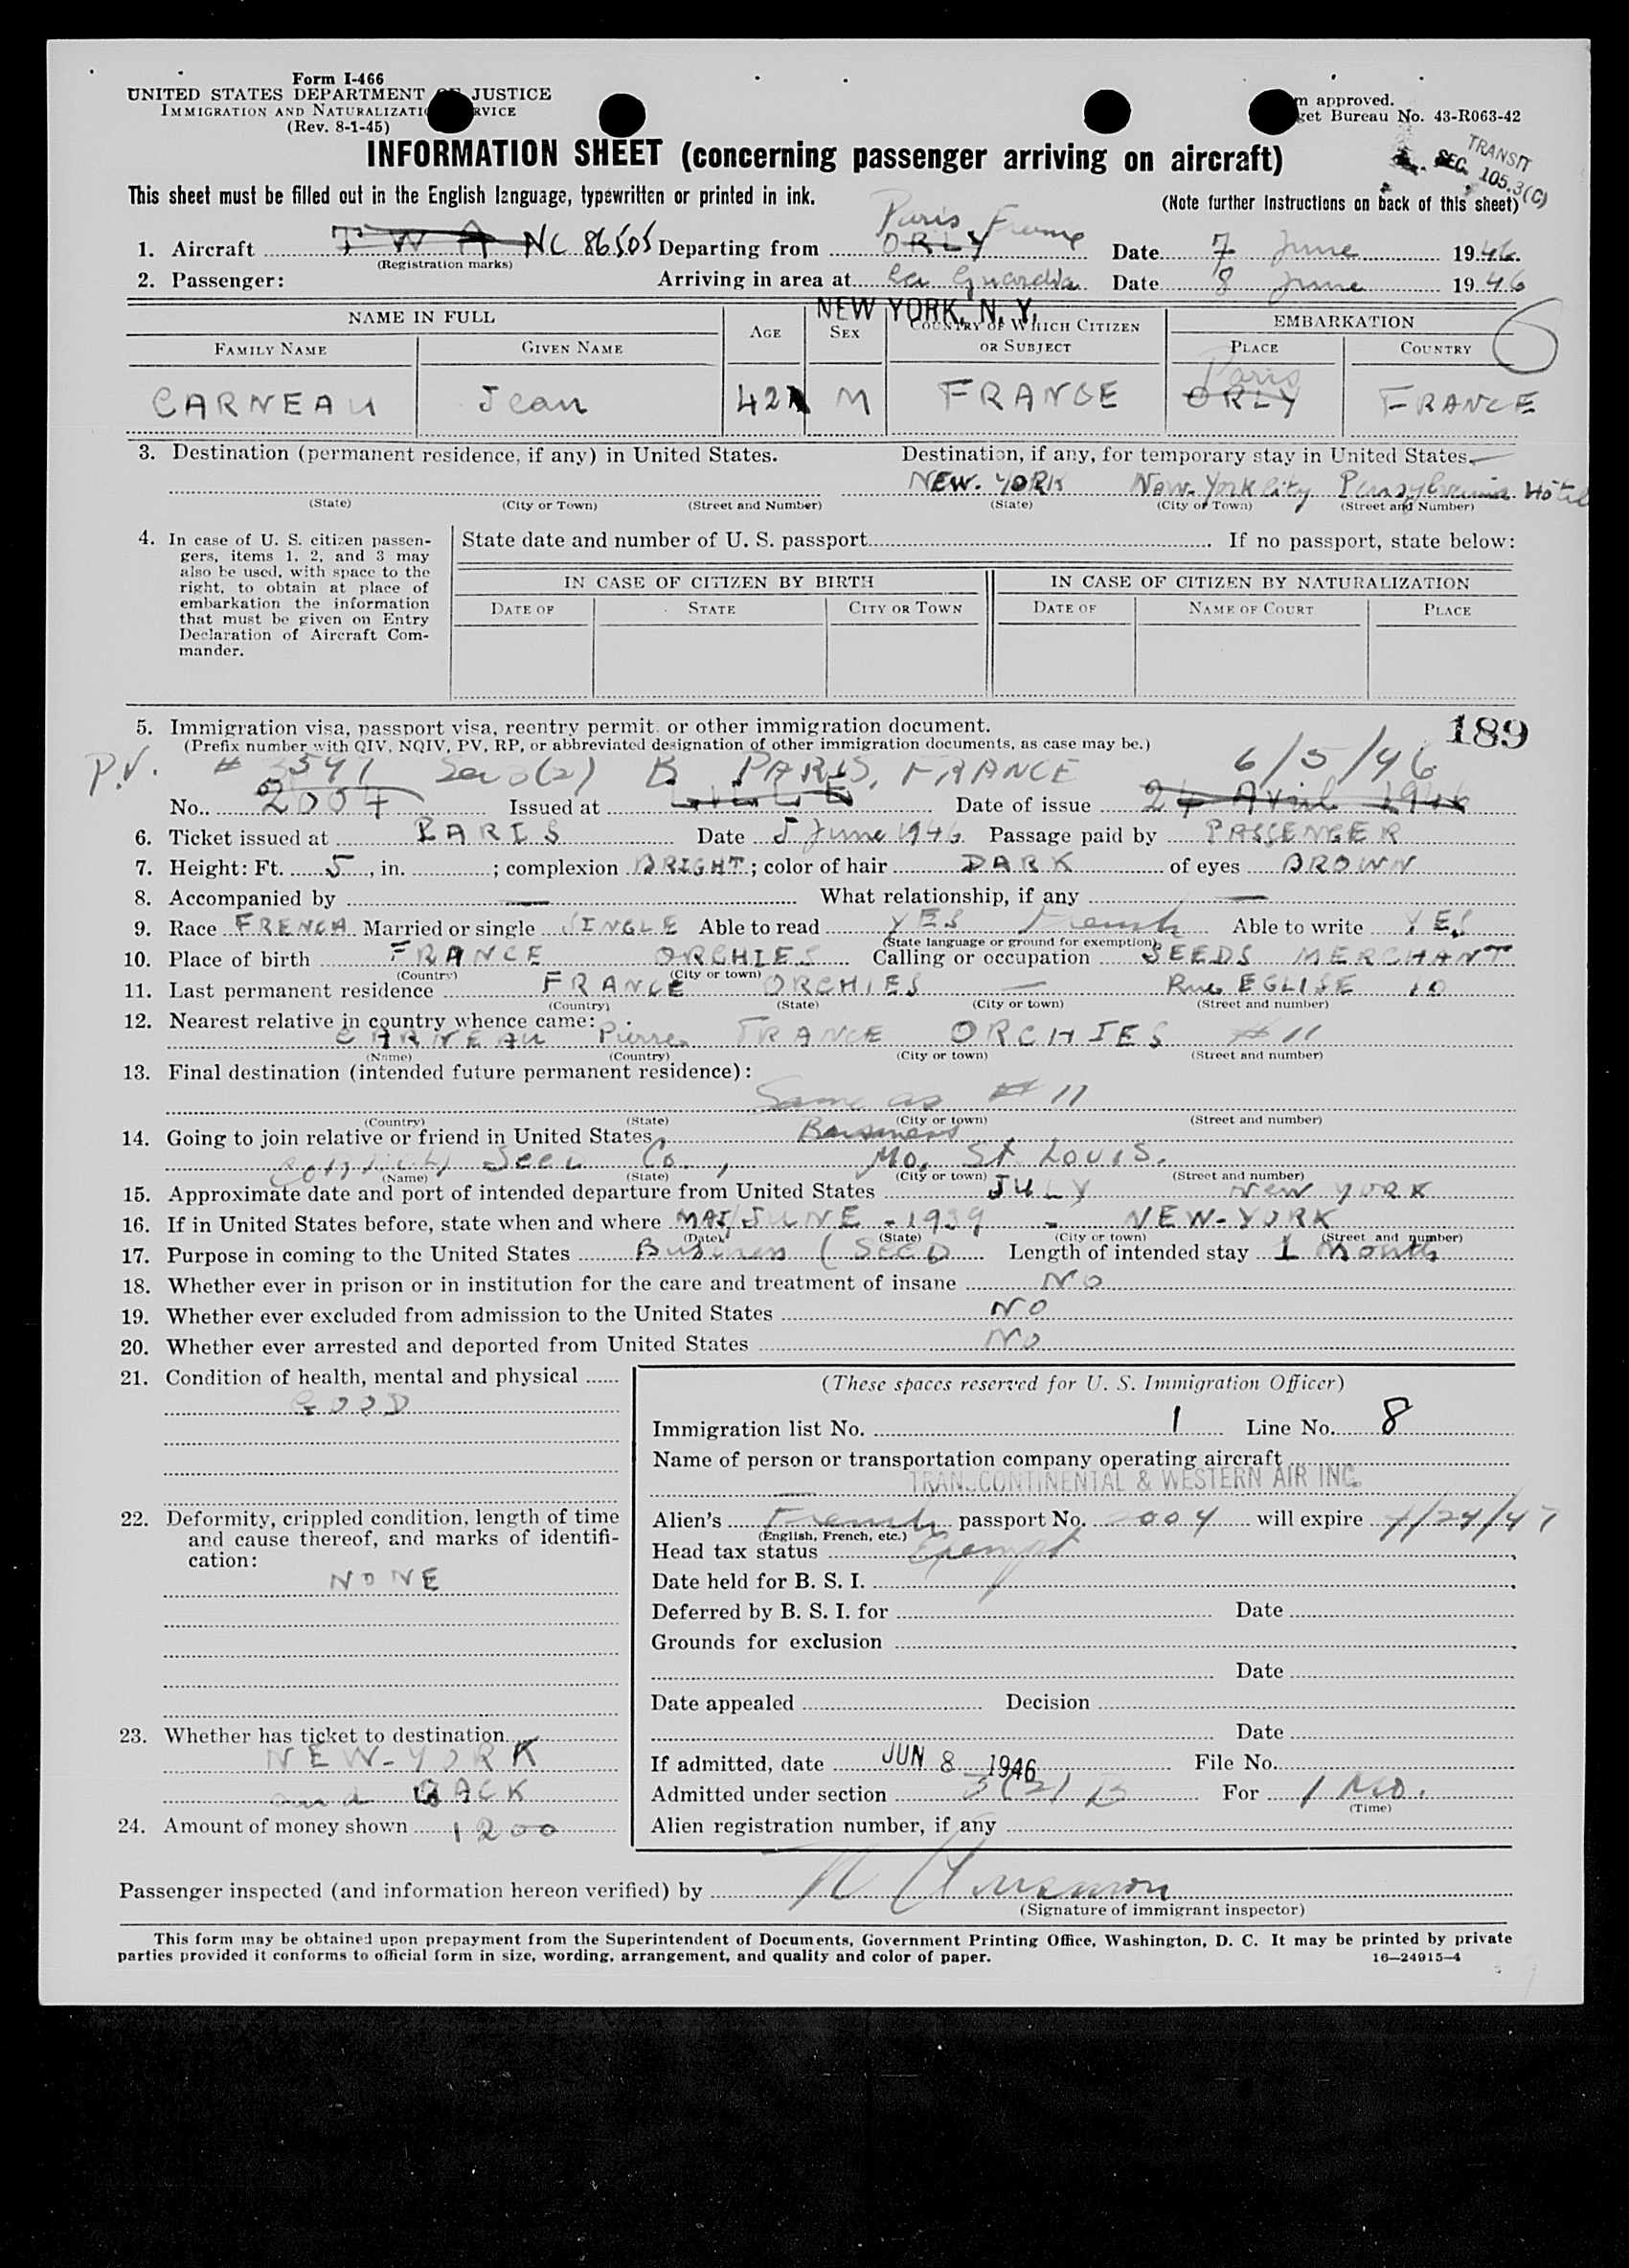 Form I-466
UNITED STATES DEPARTMENT OF JUSTICE
IMMIGRATION AND NATURALIZATION SERVICE
(Rev. 8-1-45)
approved.
Bureau No. 43-R063-42
TRANSIT
SEC. 105.3(C)
INFORMATION SHEET (concerning passenger arriving on aircraft)
This sheet must be filled out in the English language, typewritten or printed in ink.
(Note further instructions on back of this sheet)
Paris France
1. Aircraft T W A NC 86505 Departing from ORLY Date 7 June 1946.
(Registration marks)
2. Passenger: Arriving in area at La Guardia Date 8 June 1946
NEW YORK, N. Y.
NAME IN FULL AGE SEX COUNTRY OF WHICH CITIZEN OR SUBJECT EMBARKATION
FAMILY NAME GIVEN NAME PLACE COUNTRY
Paris
CARNEAU Jean 42 M FRANCE ORLY FRANCE
3. Destination (permanent residence, if any) in United States. Destination, if any, for temporary stay in United States.
NEW. YORK New. York City Pensylvania Hôtel
(State) (City or Town) (Street and Number) (State) (City or Town) (Street and Number)
4. In case of U. S. citizen passengers, items 1, 2, and 3 may also be used, with space to the right, to obtain at place of embarkation the information that must be given on Entry Declaration of Aircraft Commander.
State date and number of U. S. passport If no passport, state below:
IN CASE OF CITIZEN BY BIRTH IN CASE OF CITIZEN BY NATURALIZATION
DATE OF STATE CITY OR TOWN DATE OF NAME OF COURT PLACE
189
5. Immigration visa, passport visa, reentry permit, or other immigration document.
(Prefix number with QIV, NQIV, PV, RP, or abbreviated designation of other immigration documents, as case may be.)
P.V. # 3541 Sec 3(2) B PARIS, FRANCE 6/5/46
No. 2004 Issued at LILLE Date of issue 24 Avril 1946
6. Ticket issued at PARIS Date 5 June 1946 Passage paid by PASSENGER
7. Height: Ft. 5, in. ; complexion BRIGHT; color of hair DARK of eyes BROWN
8. Accompanied by — What relationship, if any —
9. Race FRENCH Married or single SINGLE Able to read YES French Able to write YES
(State language or ground for exemption)
10. Place of birth FRANCE ORCHIES Calling or occupation SEEDS MERCHANT
(Country) (City or town)
11. Last permanent residence FRANCE ORCHIES — Rue EGLISE 10
(Country) (State) (City or town) (Street and number)
12. Nearest relative in country whence came:
CARNEAU Pierre FRANCE ORCHIES # 11
(Name) (Country) (City or town) (Street and number)
13. Final destination (intended future permanent residence):
Same as # 11
(Country) (State) (City or town) (Street and number)
14. Going to join relative or friend in United States, Business
Seed Co., Mo. St Louis.
(Name) (State) (City or town) (Street and number)
15. Approximate date and port of intended departure from United States JULY New YORK
16. If in United States before, state when and where MAI/JUNE - 1939 - NEW-YORK
(Date) (State) (City or town) (Street and number)
17. Purpose in coming to the United States Business (SEED Length of intended stay 1 Month
18. Whether ever in prison or in institution for the care and treatment of insane NO
19. Whether ever excluded from admission to the United States NO
20. Whether ever arrested and deported from United States NO
21. Condition of health, mental and physical
GOOD
22. Deformity, crippled condition, length of time and cause thereof, and marks of identification:
NONE
23. Whether has ticket to destination
NEW-YORK
and BACK
24. Amount of money shown 1200
(These spaces reserved for U. S. Immigration Officer)
Immigration list No. 1 Line No. 8
Name of person or transportation company operating aircraft
TRANSCONTINENTAL & WESTERN AIR INC.
Alien's French passport No. 2004 will expire 4/24/47
(English, French, etc.)
Head tax status Exempt
Date held for B. S. I.
Deferred by B. S. I. for Date
Grounds for exclusion
Date
Date appealed Decision
Date
If admitted, date JUN 8 1946 File No.
Admitted under section 3(2) B For 1 Mo.
(Time)
Alien registration number, if any
Passenger inspected (and information hereon verified) by
(Signature of immigrant inspector)
This form may be obtained upon prepayment from the Superintendent of Documents, Government Printing Office, Washington, D. C. It may be printed by private
parties provided it conforms to official form in size, wording, arrangement, and quality and color of paper.
16—24915-4